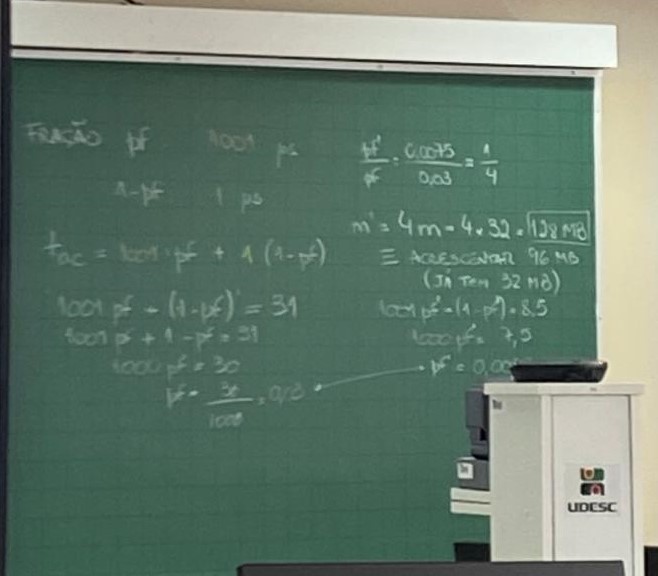 FRAÇÃO pf 1001 µs
1-pf 1 µs
tac = 1001·pf + 1 (1-pf)
1001 pf + (1-pf) = 31
1001 pf + 1 - pf = 31
1000 pf = 30
pf = 30/1000 = 0,03
pf'/pf = 0,0075/0,03 = 1/4
m' = 4m = 4×32 = 128 MB
≡ ACRESCENTAR 96 MB
(JÁ TEM 32 MB)
1001 pf' + (1-pf') = 8,5
1000 pf' = 7,5
pf' = 0,00
UDESC